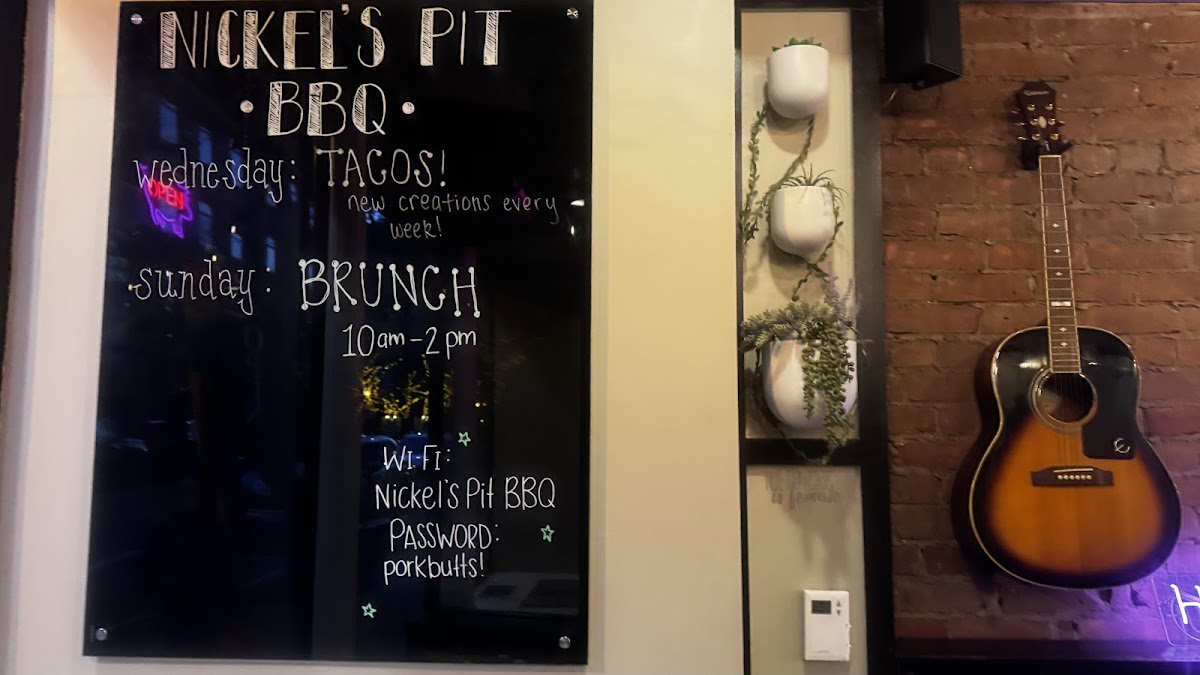 NICKEL'S PIT
• BBQ •
wednesday: TACOS!
new creations every
week!
OPEN
sunday: BRUNCH
10am - 2pm
WI-FI:
Nickel's Pit BBQ
PASSWORD:
porkbutts!
is female
Epiphone
H